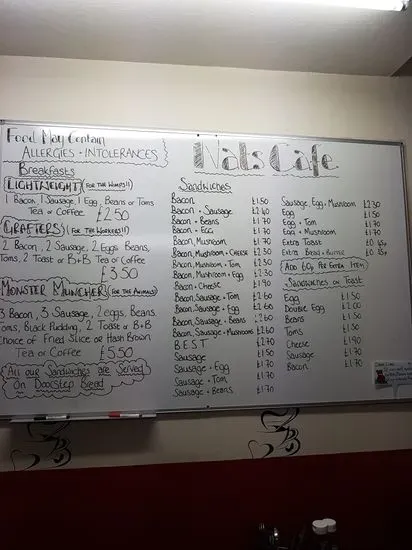 Food May Contain
ALLERGIES + INTOLERANCES
Breakfasts
LIGHTWEIGHT (FOR THE WIMPS!!)
1 Bacon, 1 Sausage, 1 Egg, Beans or Toms
Tea or Coffee £2.50
GRAFTERS (FOR THE WORKERS!!)
2 Bacon, 2 Sausage, 2 Eggs Beans,
Toms, 2 Toast or B+B Tea or Coffee
£3.50
MONSTER MUNCHER (FOR THE ANIMALS)
3 Bacon, 3 Sausage, 2 eggs, Beans
Toms, Black Pudding, 2 Toast or B+B
Choice of Fried Slice or Hash Brown
Tea or Coffee £5.50
All our Sandwiches are Served
On Doorstep Bread
Nals Cafe
Sandwiches
Bacon £1.50
Bacon + Sausage £2.40
Bacon + Beans £1.70
Bacon + Egg £1.70
Bacon, Musroom £1.70
Bacon, Mushroom + Cheese £2.30
Bacon, Mushroom + Tom £2.30
Bacon, Mushroom + Egg £2.30
Bacon + Cheese £1.90
Bacon, Sausage + Tom £2.60
Bacon, Sausage + Egg £2.60
Bacon, Sausage + Beans £2.60
Bacon, Sausage + Mushrooms £2.60
B.E.S.T £2.70
Sausage £1.50
Sausage + Egg £1.70
Sausage + Tom £1.70
Sausage + Beans £1.70
Sausage, Egg, Mushroom £2.30
Egg £1.50
Egg + Tom £1.70
Egg + Mushroom £1.70
Extra Toast £0.45p
Extra Bread + Butter £0.35p
(ADD 60p FOR EXTRA ITEM)
Sandwiches on Toast
Egg £1.50
Double Egg £2.00
Beans £1.50
Toms £1.50
Cheese £1.90
Sausage £1.70
Bacon £1.70